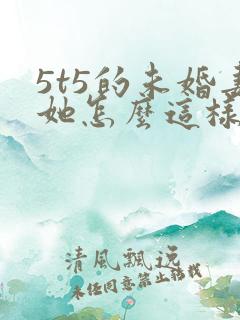 5t5的未婚妻
她怎麼這樣
清風飄逸
未經同意禁止轉載